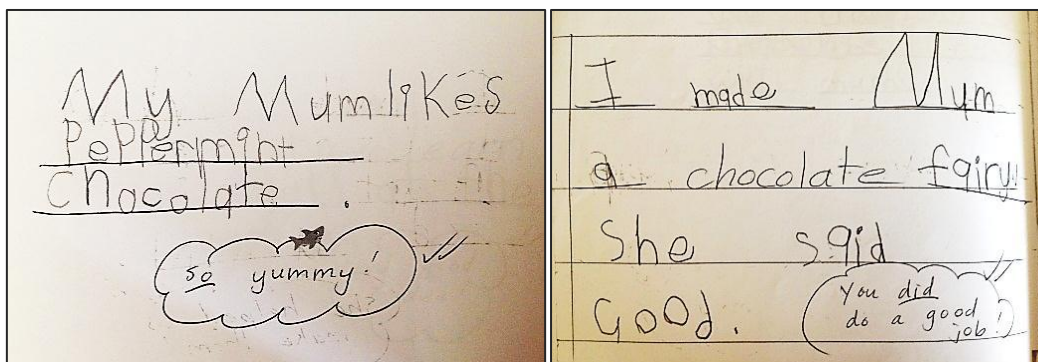 My Mum likes
Peppermint
Chocolate .
so yummy!
I made Mum
a chocolate fairy.
She said
Good.
You did
do a good
job!